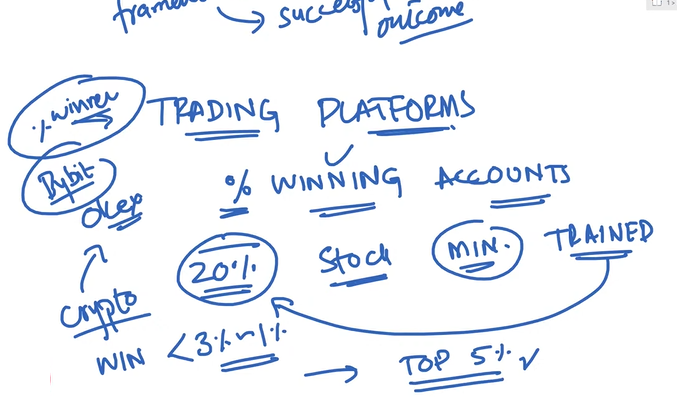 framew
successf
outcome
% winner
TRADING PLATFORMS
Bybit
Okex
% WINNING ACCOUNTS
20% Stock MIN. TRAINED
Crypto
WIN <3% ~ 1%
TOP 5%